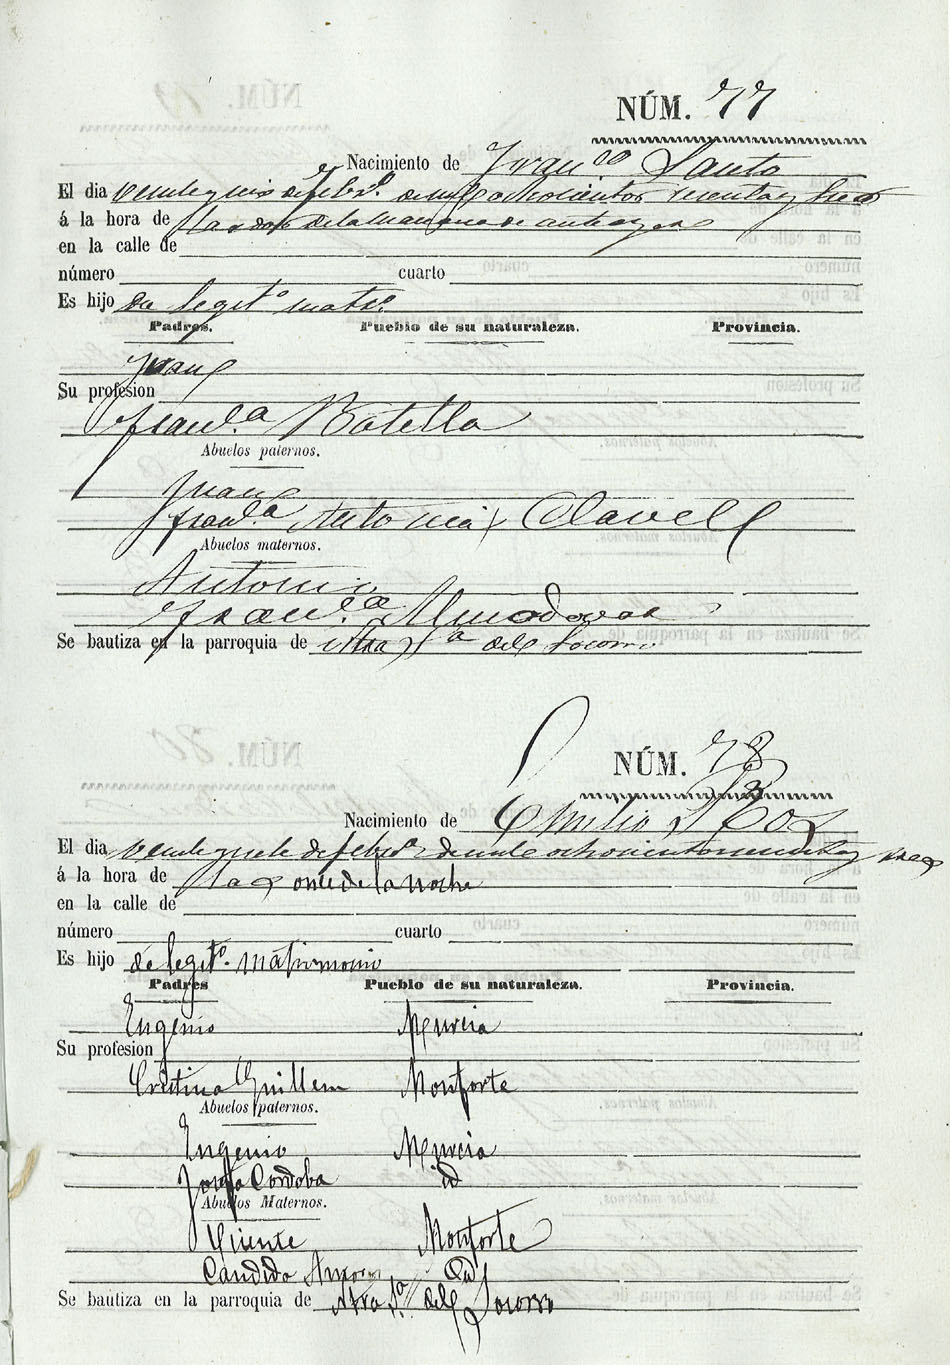 NÚM. 77
Nacimiento de Fran.co Santo
El dia veinte y seis de feb.o de mil ochocientos noventa y tres
á la hora de las dos de la mañana de anteayer
en la calle de
número cuarto
Es hijo de legit.o matr.o
Padres. Pueblo de su naturaleza. Provincia.
Juan
Su profesion
Fran.ca Botella
Abuelos paternos.
Juan
Fran.ca Antonia Clavell
Abuelos maternos.
Antonio
Fran.ca Almodovar
Se bautiza en la parroquia de Ntra S.a del Socorro
NÚM. 78
Nacimiento de Emilio
El dia veinte y siete de feb.o de mil ochocientos noventa y tres
á la hora de las once de la noche
en la calle de
número cuarto
Es hijo de legit.o matrimonio
Padres Pueblo de su naturaleza. Provincia.
Eugenio Murcia
Su profesion
Cristina Guillem Monforte
Abuelos paternos.
Eugenio Murcia
Josefa Cordoba id
Abuelos Maternos.
Vicente Monforte
Candida id
Se bautiza en la parroquia de Ntra S.a del Socorro